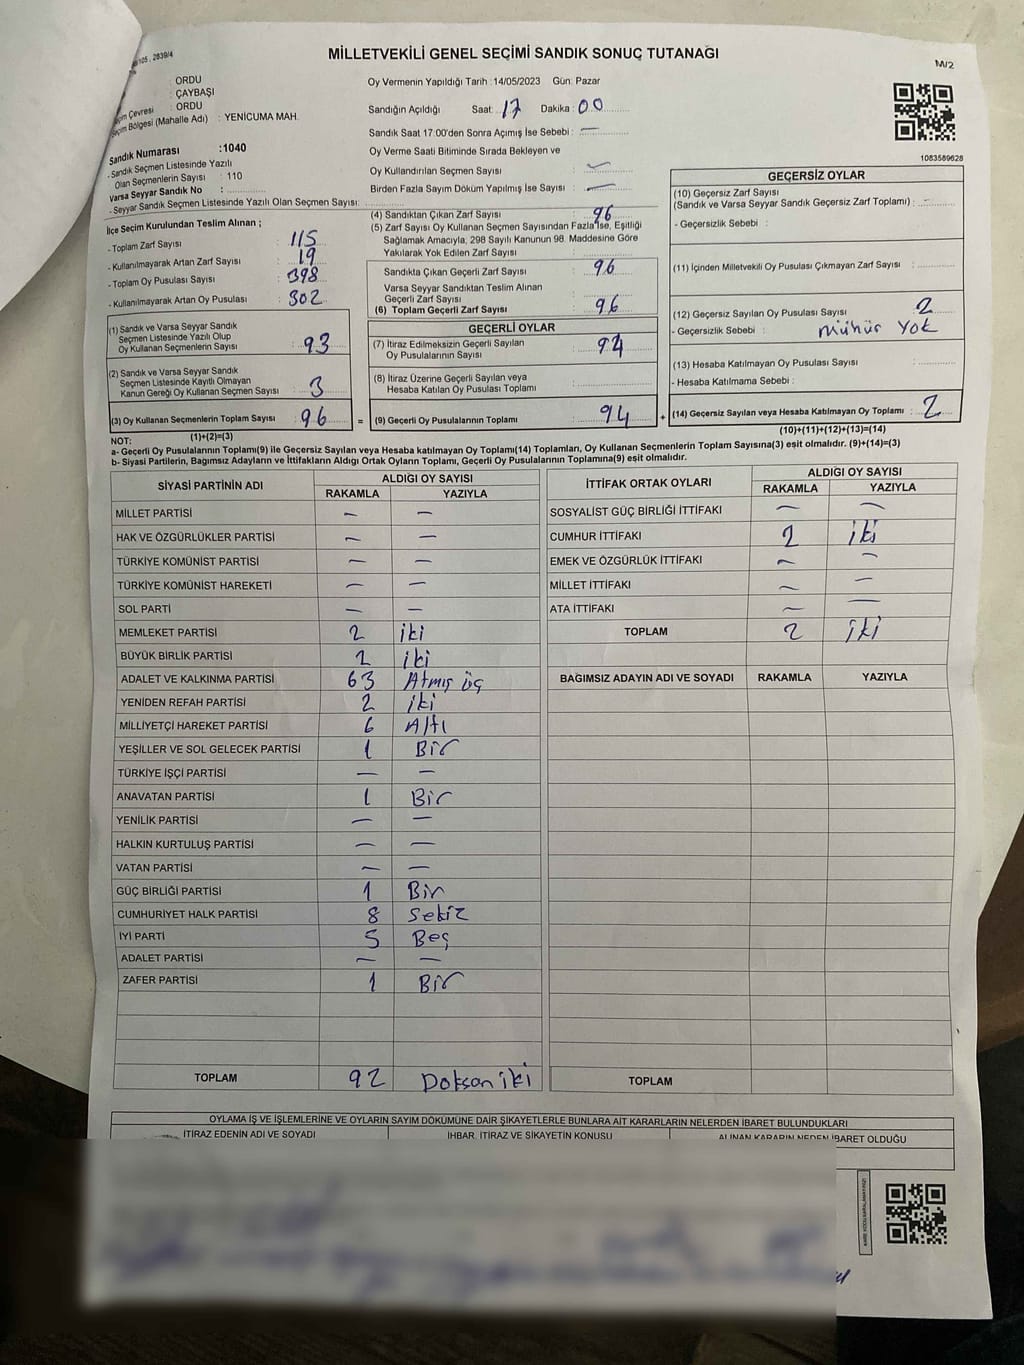 MİLLETVEKİLİ GENEL SEÇİMİ SANDIK SONUÇ TUTANAĞI
M/2
ORDU
: ÇAYBAŞI
: ORDU
Seçim Bölgesi (Mahalle Adı) : YENİCUMA MAH.
Oy Vermenin Yapıldığı Tarih : 14/05/2023 Gün: Pazar
Sandığın Açıldığı Saat: 17 Dakika : 00
Sandık Saat 17:00'den Sonra Açımış İse Sebebi : —
Oy Verme Saati Bitiminde Sırada Bekleyen ve
Oy Kullandırılan Seçmen Sayısı :
Birden Fazla Sayım Döküm Yapılmış İse Sayısı : —
1083589628
Sandık Numarası : 1040
- Sandık Seçmen Listesinde Yazılı
Olan Seçmenlerin Sayısı : 110
Varsa Seyyar Sandık No :
- Seyyar Sandık Seçmen Listesinde Yazılı Olan Seçmen Sayısı:
İlçe Seçim Kurulundan Teslim Alınan ;
- Toplam Zarf Sayısı : 115
- Kullanılmayarak Artan Zarf Sayısı : 19
- Toplam Oy Pusulası Sayısı : 398
- Kullanılmayarak Artan Oy Pusulası : 302
(1) Sandık ve Varsa Seyyar Sandık
Seçmen Listesinde Yazılı Olup
Oy Kullanan Seçmenlerin Sayısı : 93
(2) Sandık ve Varsa Seyyar Sandık
Seçmen Listesinde Kayıtlı Olmayan
Kanun Gereği Oy Kullanan Seçmen Sayısı : 3
(3) Oy Kullanan Seçmenlerin Toplam Sayısı : 96
(1)+(2)=(3)
(4) Sandıktan Çıkan Zarf Sayısı : 96
(5) Zarf Sayısı Oy Kullanan Seçmen Sayısından Fazla İse, Eşitliği
Sağlamak Amacıyla, 298 Sayılı Kanunun 98. Maddesine Göre
Yakılarak Yok Edilen Zarf Sayısı :
Sandıkta Çıkan Geçerli Zarf Sayısı : 96
Varsa Seyyar Sandıktan Teslim Alınan
Geçerli Zarf Sayısı :
(6) Toplam Geçerli Zarf Sayısı : 96
GEÇERLİ OYLAR
(7) İtiraz Edilmeksizin Geçerli Sayılan
Oy Pusulalarının Sayısı : 94
(8) İtiraz Üzerine Geçerli Sayılan veya
Hesaba Katılan Oy Pusulası Toplamı :
= (9) Geçerli Oy Pusulalarının Toplamı : 94
GEÇERSİZ OYLAR
(10) Geçersiz Zarf Sayısı
(Sandık ve Varsa Seyyar Sandık Geçersiz Zarf Toplamı) :
- Geçersizlik Sebebi :
(11) İçinden Milletvekili Oy Pusulası Çıkmayan Zarf Sayısı :
(12) Geçersiz Sayılan Oy Pusulası Sayısı : 2
- Geçersizlik Sebebi : Mühür Yok
(13) Hesaba Katılmayan Oy Pusulası Sayısı :
- Hesaba Katılmama Sebebi :
+ (14) Geçersiz Sayılan veya Hesaba Katılmayan Oy Toplamı : 2
(10)+(11)+(12)+(13)=(14)
NOT:
a- Geçerli Oy Pusulalarının Toplamı(9) ile Geçersiz Sayılan veya Hesaba katılmayan Oy Toplamı(14) Toplamları, Oy Kullanan Seçmenlerin Toplam Sayısına(3) eşit olmalıdır. (9)+(14)=(3)
b- Siyasi Partilerin, Bağımsız Adayların ve İttifakların Aldığı Ortak Oyların Toplamı, Geçerli Oy Pusulalarının Toplamına(9) eşit olmalıdır.
SİYASİ PARTİNİN ADI ALDIĞI OY SAYISI
RAKAMLA YAZIYLA
MİLLET PARTİSİ — —
HAK VE ÖZGÜRLÜKLER PARTİSİ — —
TÜRKİYE KOMÜNİST PARTİSİ — —
TÜRKİYE KOMÜNİST HAREKETİ — —
SOL PARTİ — —
MEMLEKET PARTİSİ 2 iki
BÜYÜK BİRLİK PARTİSİ 2 iki
ADALET VE KALKINMA PARTİSİ 63 Atmış üç
YENİDEN REFAH PARTİSİ 2 iki
MİLLİYETÇİ HAREKET PARTİSİ 6 Altı
YEŞİLLER VE SOL GELECEK PARTİSİ 1 Bir
TÜRKİYE İŞÇİ PARTİSİ — —
ANAVATAN PARTİSİ 1 Bir
YENİLİK PARTİSİ — —
HALKIN KURTULUŞ PARTİSİ — —
VATAN PARTİSİ — —
GÜÇ BİRLİĞİ PARTİSİ 1 Bir
CUMHURİYET HALK PARTİSİ 8 Sekiz
İYİ PARTİ 5 Beş
ADALET PARTİSİ — —
ZAFER PARTİSİ 1 Bir
TOPLAM 92 Doksan iki
İTTİFAK ORTAK OYLARI ALDIĞI OY SAYISI
RAKAMLA YAZIYLA
SOSYALİST GÜÇ BİRLİĞİ İTTİFAKI — —
CUMHUR İTTİFAKI 2 iki
EMEK VE ÖZGÜRLÜK İTTİFAKI — —
MİLLET İTTİFAKI — —
ATA İTTİFAKI — —
TOPLAM 2 iki
BAĞIMSIZ ADAYIN ADI VE SOYADI RAKAMLA YAZIYLA
TOPLAM
OYLAMA İŞ VE İŞLEMLERİNE VE OYLARIN SAYIM DÖKÜMÜNE DAİR ŞİKAYETLERLE BUNLARA AİT KARARLARIN NELERDEN İBARET BULUNDUKLARI
İTİRAZ EDENİN ADI VE SOYADI İHBAR, İTİRAZ VE ŞİKAYETİN KONUSU ALINAN KARARIN NEDEN İBARET OLDUĞU